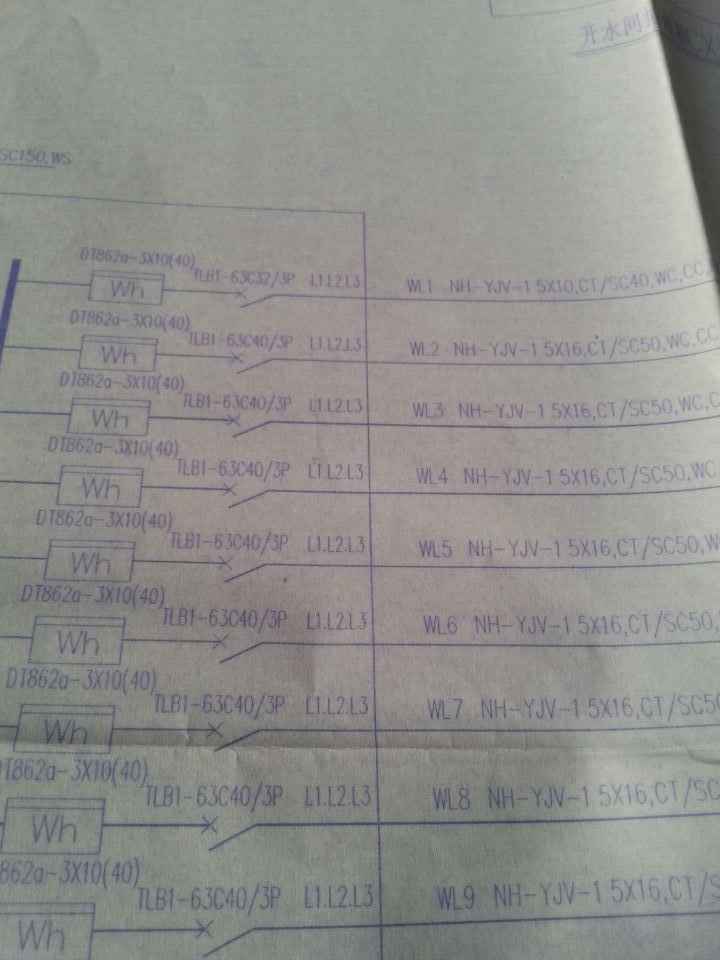 开水间
SC150,WS
DT862a-3X10(40)
Wh TLB1-63C32/3P L1.L2.L3 WL1 NH-YJV-1 5X10,CT/SC40,WC,CC
DT862a-3X10(40)
Wh TLB1-63C40/3P L1.L2.L3 WL2 NH-YJV-1 5X16,CT/SC50,WC,CC
DT862a-3X10(40)
Wh TLB1-63C40/3P L1.L2.L3 WL3 NH-YJV-1 5X16,CT/SC50,WC,C
DT862a-3X10(40)
Wh TLB1-63C40/3P L1.L2.L3 WL4 NH-YJV-1 5X16,CT/SC50,WC
DT862a-3X10(40)
Wh TLB1-63C40/3P L1.L2.L3 WL5 NH-YJV-1 5X16,CT/SC50,W
DT862a-3X10(40)
Wh TLB1-63C40/3P L1.L2.L3 WL6 NH-YJV-1 5X16,CT/SC50,
DT862a-3X10(40)
Wh TLB1-63C40/3P L1.L2.L3 WL7 NH-YJV-1 5X16,CT/SC50
T862a-3X10(40)
Wh TLB1-63C40/3P L1.L2.L3 WL8 NH-YJV-1 5X16,CT/SC
862a-3X10(40)
Wh TLB1-63C40/3P L1.L2.L3 WL9 NH-YJV-1 5X16,CT/S